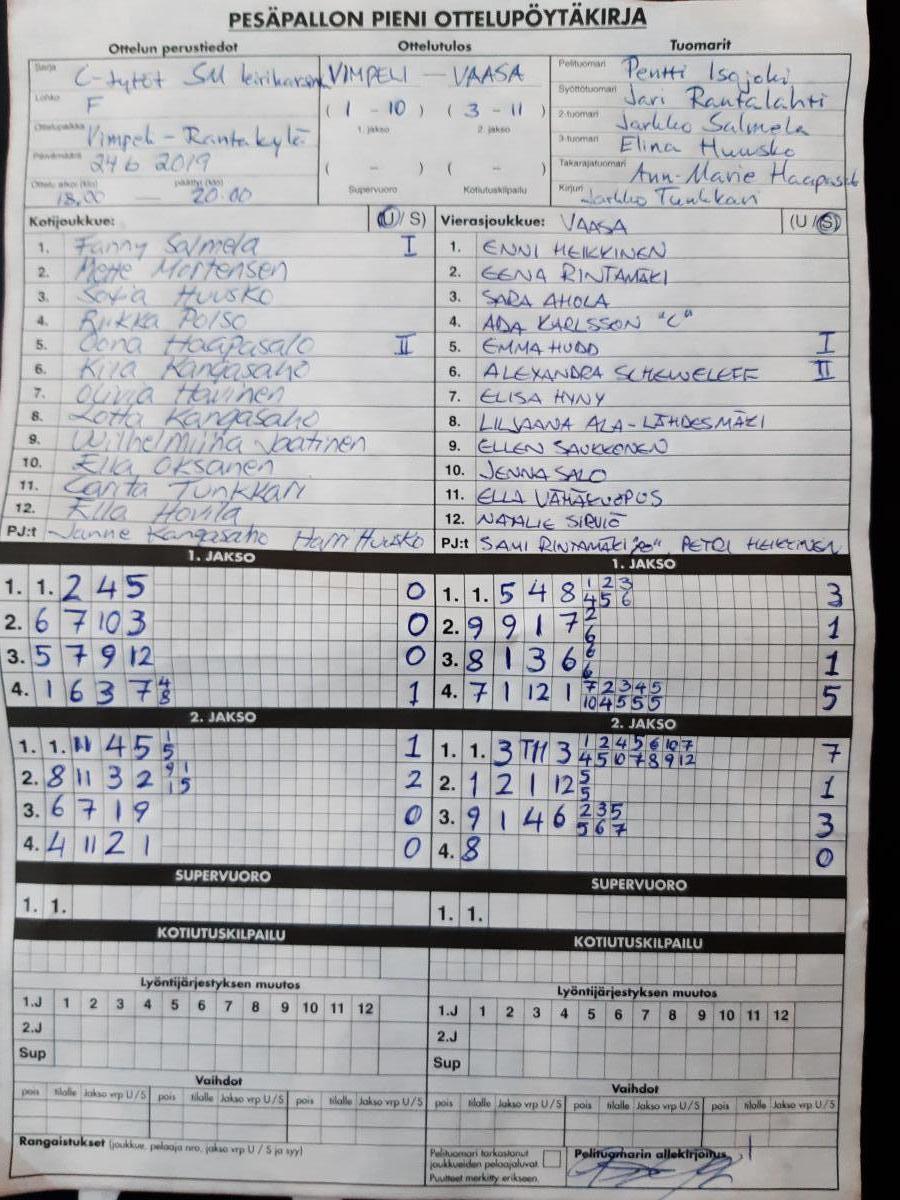 PESÄPALLON PIENI OTTELUPÖYTÄKIRJA
Ottelun perustiedot Ottelutulos Tuomarit
Sarja C-tytöt SM VIMPELI — VAASA Pelituomari Pentti Isojoki
Lohko F ( 1 - 10 ) ( 3 - 11 ) Syöttötuomari Jari Rantalahti
1. jakso 2. jakso 2-tuomari Jarkko Salmela
Ottelupaikka Vimpeli - Rantakylä 3-tuomari Elina Huusko
Päivämäärä 24 6 2019 ( - ) ( - ) Takarajatuomari Ann-Marie
Ottelu alkoi (klo) 18.00 — päättyi (klo) 20.00 Supervuoro Kotiutuskilpailu Kirjuri Jarkko Tunkkari
Kotijoukkue: (U/ S) Vierasjoukkue: VAASA (U / S)
1. Fanny Salmela I 1. ENNI HEIKKINEN
2. Mette Mortensen 2. EENA RINTAMÄKI
3. Sofia Huusko 3. SARA AHOLA
4. Riikka Polso 4. ADA KARLSSON "C"
5. Oona Haapasalo II 5. EMMA HUDD I
6. Kiia Kangasaho 6. ALEXANDRA II
7. Olivia 7. ELISA HYNY
8. Lotta Kangasaho 8. ALA-LÄHDESMÄKI
9. Wilhelmiina Jaatinen 9. ELLEN SAUKKONEN
10. Ella Oksanen 10. JENNA SALO
11. Carita Tunkkari 11. ELLA VÄHÄKUOPUS
12. Ella Hovila 12. NATALIE SIRVIÖ
PJ:t Janne Kangasaho Harri Huusko PJ:t SAMI RINTAMÄKI PETRI HEIKKINEN
1. JAKSO 1. JAKSO
1. 1. 2 4 5 0 1. 1. 5 4 8 1 2 3 3
4 5 6
2. 6 7 10 3 0 2. 9 9 1 7 2 1
6
3. 5 7 9 12 0 3. 8 1 3 6 6 1
6
4. 1 6 3 7 4 1 4. 7 1 12 1 7 2 3 4 5 5
8 10 4 5 5 5
2. JAKSO 2. JAKSO
1. 1. 11 4 5 1 1 1. 1. 3 3 1 2 4 5 6 10 7 7
5 4 5 10 7 8 9 12
2. 8 11 3 2 9 1 2 2. 1 2 1 12 5 1
1 5 5
3. 6 7 1 9 0 3. 9 1 4 6 2 3 5 3
5 6 7
4. 4 11 2 1 0 4. 8 0
SUPERVUORO SUPERVUORO
1. 1. 1. 1.
KOTIUTUSKILPAILU KOTIUTUSKILPAILU
Lyöntijärjestyksen muutos Lyöntijärjestyksen muutos
1.J 1 2 3 4 5 6 7 8 9 10 11 12 1.J 1 2 3 4 5 6 7 8 9 10 11 12
2.J 2.J
Sup Sup
Vaihdot Vaihdot
pois tilalle Jakso vrp U / S pois tilalle Jakso vrp U / S pois tilalle Jakso vrp U / S pois tilalle Jakso vrp U / S pois tilalle Jakso vrp U / S pois tilalle Jakso vrp U / S
Rangaistukset (joukkue, pelaaja nro, jakso vrp U / S ja syy) Pelituomari tarkastanut Pelituomarin allekirjoitus
joukkueiden pelaajaluvat.
Puutteet merkitty erikseen.